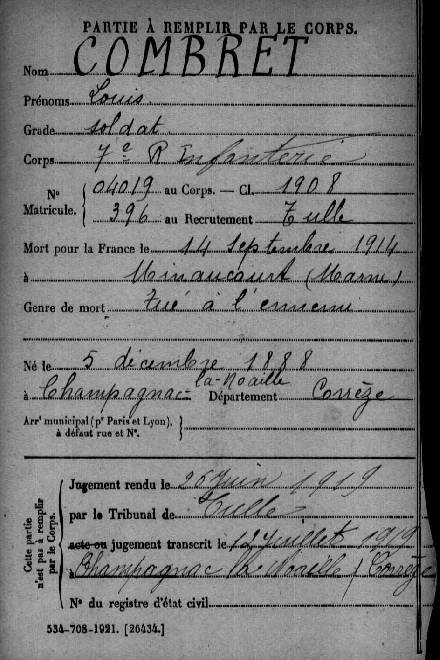 PARTIE À REMPLIR PAR LE CORPS.
Nom COMBRET
Prénoms Louis
Grade soldat
Corps 7e R Infanterie
N° Matricule. { 04019 au Corps. — Cl. 1908
396 au Recrutement Tulle
Mort pour la France le 14 septembre 1914
à Minaucourt (Marne)
Genre de mort Tué à l'ennemi
Né le 5 décembre 1888
à Champagnac-la-Noaille Département Corrèze
Arrt municipal (pr Paris et Lyon),
à défaut rue et N°.
Cette partie n'est pas à remplir par le Corps.
Jugement rendu le 26 Juin 1919
par le Tribunal de Tulle
acte ou jugement transcrit le 12 Juillet 1919
à Champagnac la Noaille (Corrèze
N° du registre d'état civil
534-708-1921. [26434.]